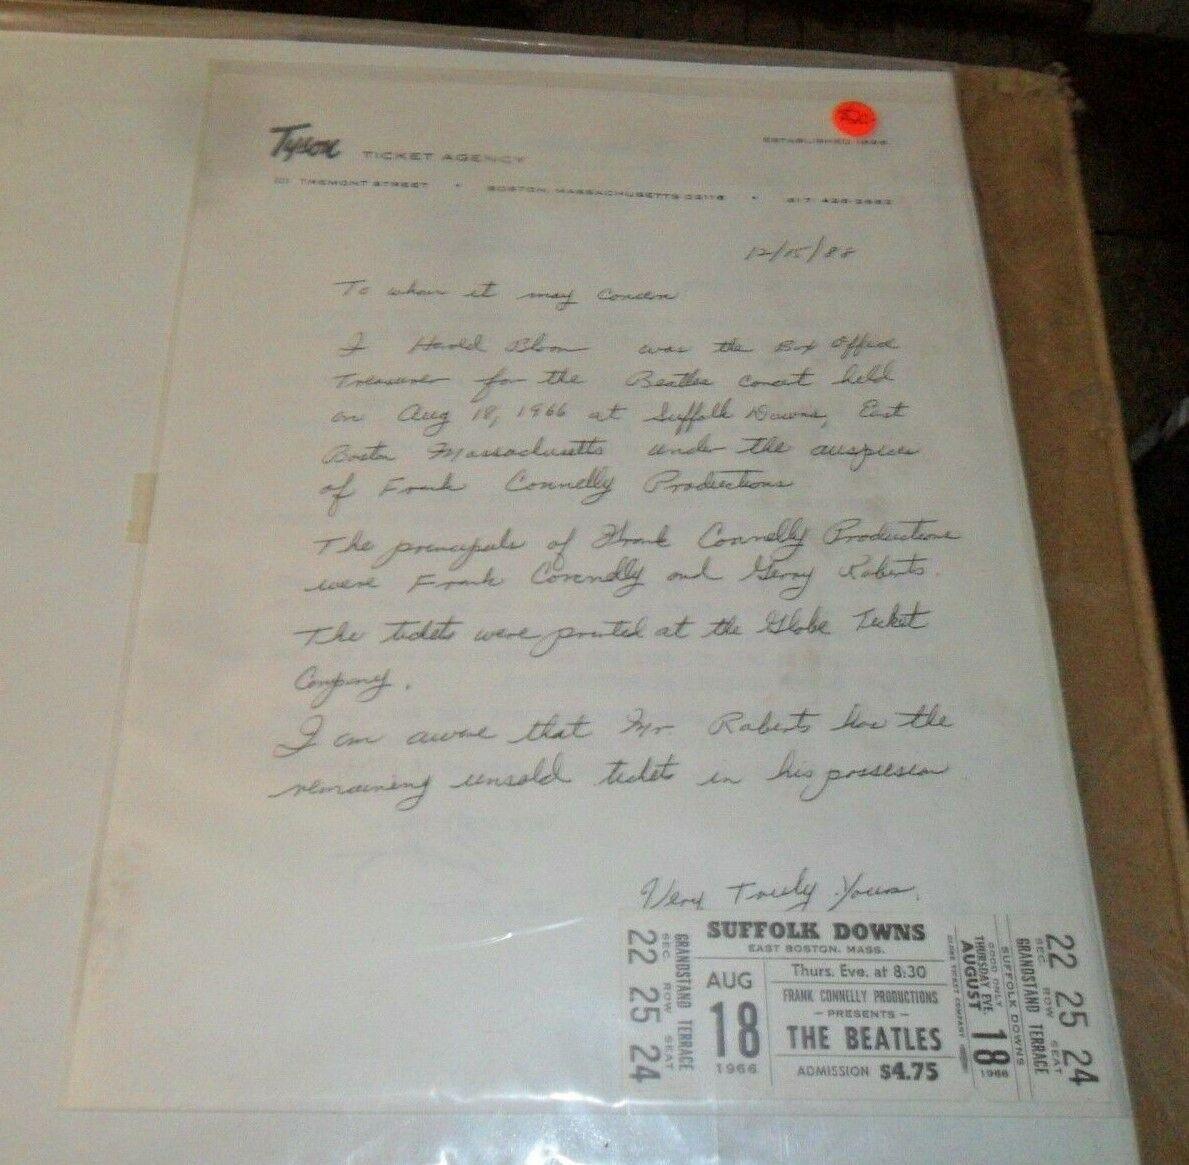 Tyson TICKET AGENCY
ESTABLISHED
TREMONT STREET • BOSTON, MASSACHUSETTS 02116 • 617
12/15/88
To whom it may concern
I Harold Bloom was the Box Office
Treasurer for the Beatles concert held
on Aug 18, 1966 at Suffolk Downs, East
Boston Massachusetts under the auspices
of Frank Connelly Productions
The principals of Frank Connelly Productions
were Frank Connelly and Gerry Roberts.
The tickets were printed at the Globe Ticket
Company.
I am aware that Mr. Roberts has the
remaining unsold tickets in his possession
Very Truly Yours,
22 25 24
SEC ROW SEAT
GRANDSTAND TERRACE
SUFFOLK DOWNS
EAST BOSTON, MASS.
AUG
18
1966
Thurs. Eve. at 8:30
FRANK CONNELLY PRODUCTIONS
— PRESENTS —
THE BEATLES
ADMISSION $4.75
GLOBE TICKET COMPANY
AUGUST
THURSDAY EVE.
GOOD ONLY
18
1966
SUFFOLK DOWNS
GRANDSTAND TERRACE
SEC ROW SEAT
22 25 24